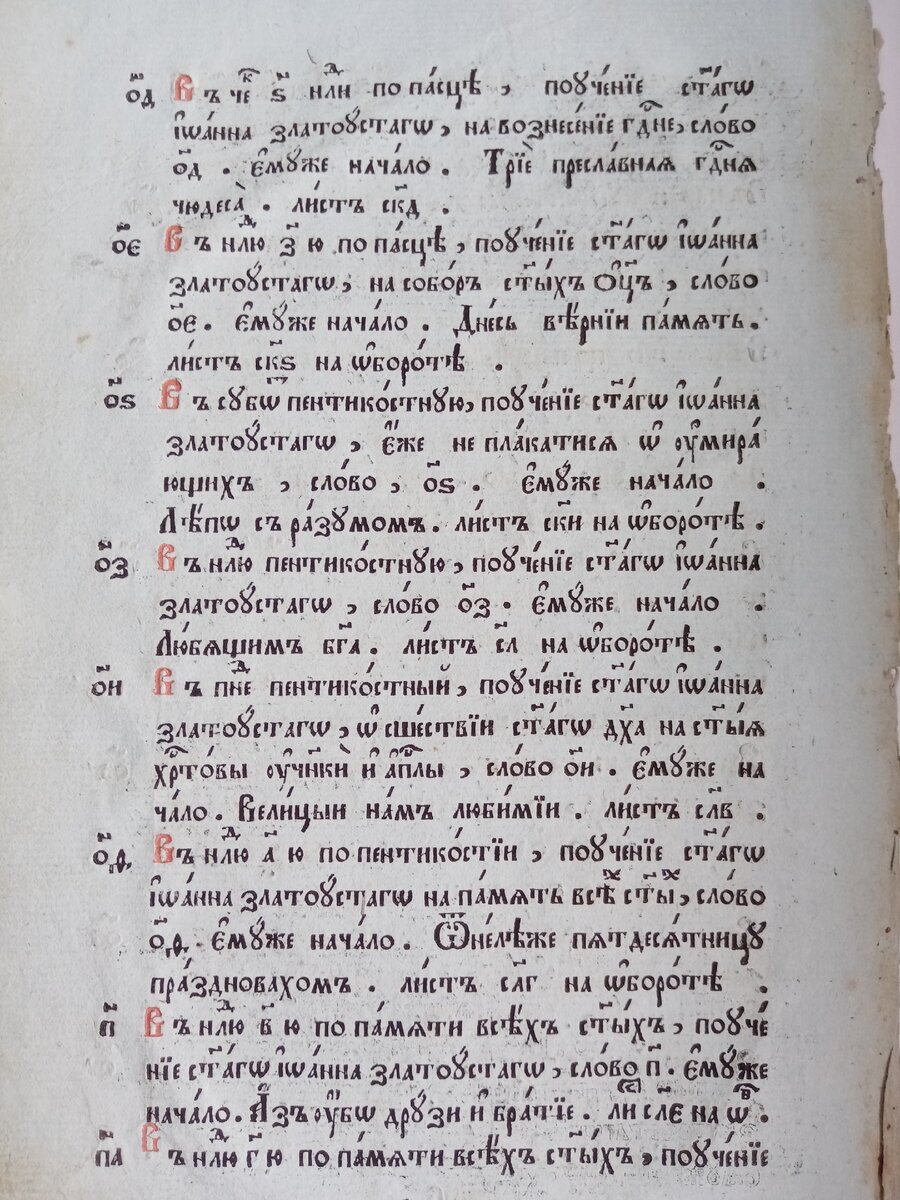 о҃д Въ че҃к ѕ҃ нлⷣи по па́сцѣ , поуче́нїе ст҃а́гѡ
і҆ѡа́нна златоꙋ́стагѡ , на вознесе́нїе гдⷭ҇не , сло́во
о҃д . є҆мꙋ́же нача́ло . Трїѐ пресла́вная гдⷭ҇ня
чюдеса̀ . ли́стъ ск҃д .
о҃є Въ нлⷣю з҃ ю по па́сцѣ , поуче́нїе ст҃а́гѡ і҆ѡа́нна
златоꙋ́стагѡ , на собо́ръ ст҃ы́хъ ѻ҆ц҃ъ , сло́во
о҃є . є҆мꙋ́же нача́ло . Дне́сь вѣ́рнїи па́мять .
ли́стъ ск҃ѕ на ѡ҆боро́тѣ .
о҃ѕ Въ сꙋбѡⷮ пентико́стнꙋю , поуче́нїе ст҃а́гѡ і҆ѡа́нна
златоꙋ́стагѡ , є҆́же не пла́катися ѡ҆ ᲂу҆мира́
ющихъ , сло́во , о҃ѕ . є҆мꙋ́же нача́ло .
Лѣ́пѡ съ ра́зꙋмомъ . ли́стъ ск҃и на ѡ҆боро́тѣ .
о҃з Въ нлⷣю пентико́стнꙋю , поуче́нїе ст҃а́гѡ і҆ѡа́нна
златоꙋ́стагѡ , сло́во о҃з . є҆мꙋ́же нача́ло .
Лю́бящимъ бг҃а . ли́стъ сл҃ на ѡ҆боро́тѣ .
о҃и Въ пнⷣе пентико́стный , поуче́нїе ст҃а́гѡ і҆ѡа́нна
златоꙋ́стагѡ , ѡ҆ сше́ствїи ст҃а́гѡ дх҃а на ст҃ы́я
хрⷭ҇то́вы ᲂу҆ч҃нкѝ и҆ а҆пⷭ҇лы , сло́во о҃и . є҆мꙋ́же на
ча́ло . Вели́цыи на́мъ люби́мїи . ли́стъ сл҃в .
о҃ѳ Въ нлⷣю а҃ ю по пентико́стїи , поуче́нїе ст҃а́гѡ
і҆ѡа́нна златоꙋ́стагѡ на па́мять всѣⷯ ст҃ыⷯ , сло́во
о҃ѳ . є҆мꙋ́же нача́ло . Ѿне́лѣже пятдеся́тницꙋ
пра́здновахомъ . ли́стъ сл҃г на ѡ҆боро́тѣ .
п҃ Въ нлⷣю в҃ ю по па́мяти всѣ́хъ ст҃ы́хъ , поуче́
нїе ст҃а́гѡ і҆ѡа́нна златоꙋ́стагѡ , сло́во п҃ . є҆мꙋ́же
нача́ло . А҆́зъ ᲂу҆́бѡ дрꙋ́зи и҆ бра́тїе . лиⷭ҇ сл҃є на ѡ҆ⷠ .
п҃а Въ нлⷣю г҃ ю по па́мяти всѣ́хъ ст҃ы́хъ , поуче́нїе